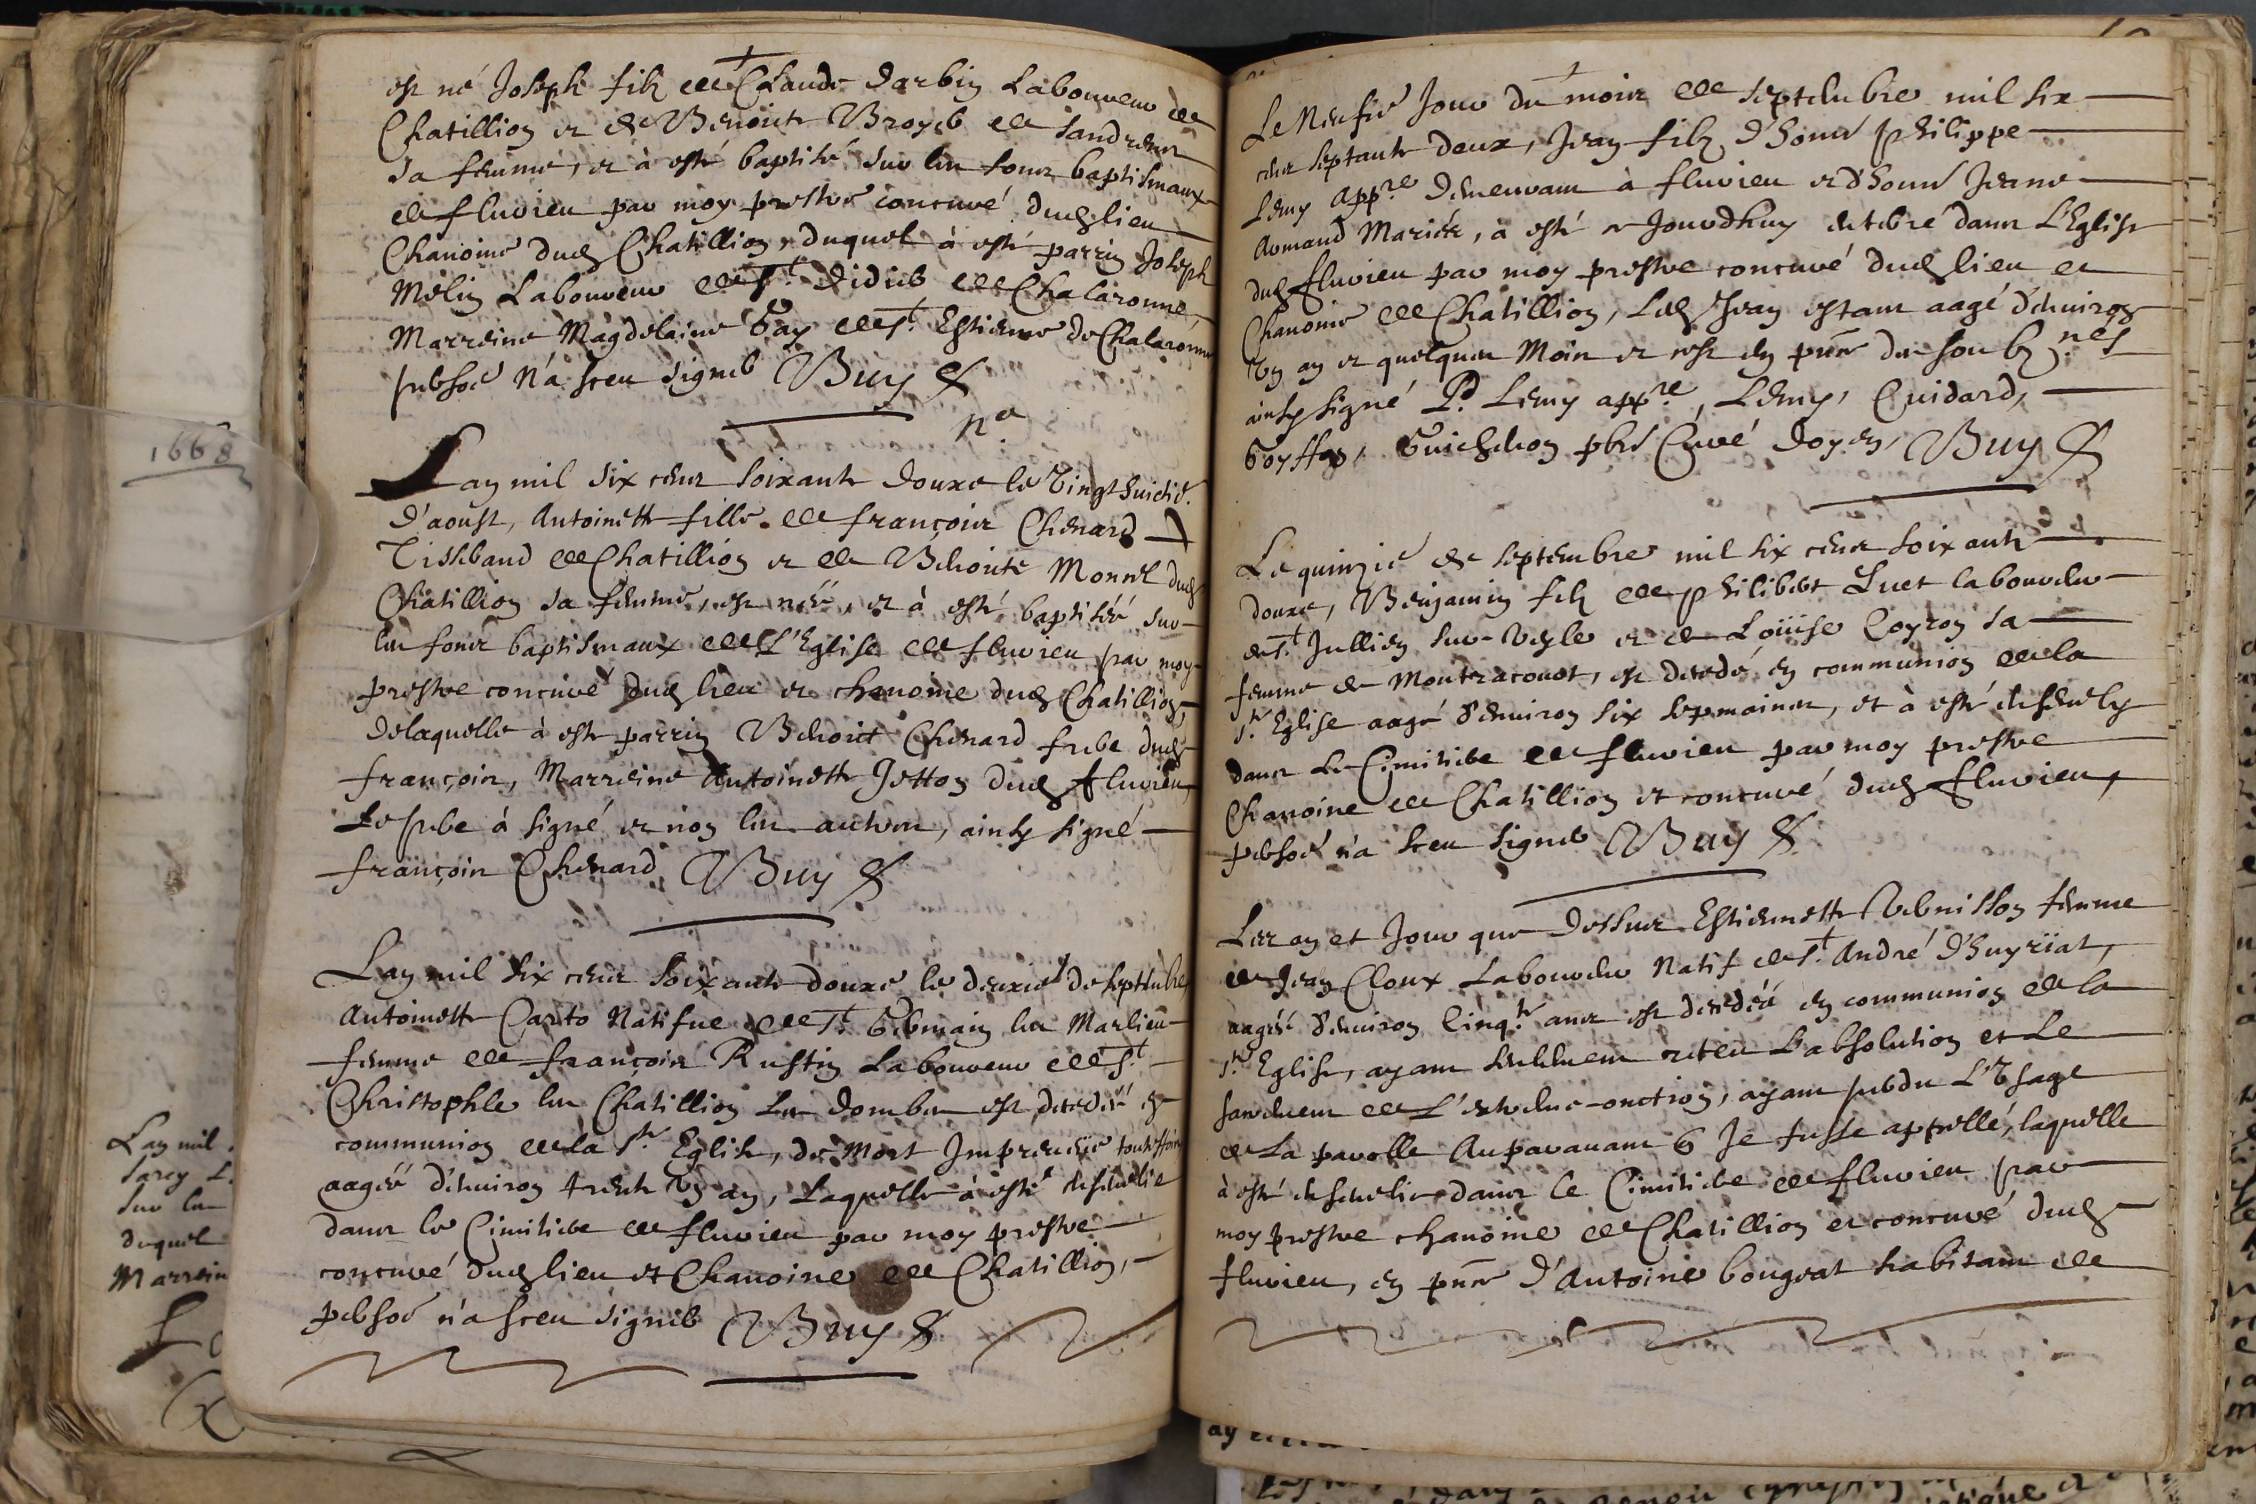 est né Joseph filz de Claude Darbin Laboureur de
Chatillion et de Benoite Broyer de Sandrens
sa femme, et à esté baptisé sur les fonts baptismaux
de fluvieu par moy prestre concuré dudt lieu
Chanoine dudt Chatillion, duquel à esté parrin Joseph
Melin Laboureur de St. Didier de Chalaronne,
Marreine Magdelaine Gay de St. Estienne de Chalaronne
persoe n'a sceu signer Buy
na
Lan mil six cens soixante douze le vingt huictie.
d'aoust, Antoinette fille de françois Chenard
Tisserand de Chatillion et de Benoite Monnet dudt
Chatillion sa femme, est née, et à esté baptisée sur
les fonts baptismaux de L'Eglise de fluvieu par moy
prestre concuré dudt lieu et chanoine dudt Chatillion,
delaquelle à este parrin Benoict Chenard frere dudt
françois, Marreine Antoinette Jetton dudt fluvieu,
Le pere à signé et non les autres, ainsy signé
françois Chenard, Buy
Lan mil six cens soixante douze le deuxie de septembre
Antoinette Carto Natifue de St. Germain les Marlieu
femme de françois Rustin Laboureur de St.
Christophle les Chatillion Les dombes est decedée en
communion de la Ste. Eglise, de Mort Impreueüe toutesfois
aagée d'enuiron trente vn an, Laquelle à esté enseuelie
dans le Cimitiere de fluvieu par moy prestre
concuré dudt lieu et Chanoine de Chatillion,
persoe n'a sceu signer Buy
Le Neufie Jour du mois de septembre mil six
cens septante deux, Jean filz d'honne Philippe
Lemy appre. demeurant à fluvieu et d'honne Jeane
Armand Mariés, à esté ce Jourdhuy enterré dans L'Eglise
dudt fluvieu par moy prestre concuré dudt lieu et
Chanoine de Chatillion, Ledt Jean estant aagé d'enuiron
vn an et quelques Mois et ce est en pnce des soubznés
ainsy signé Pd. Lemy appre, Lemy, Cuidard,
Goyffon, Guichelion pbre Curé doyen, Buy
Le quinzie de septembre mil six cens soixante
douze, Benjamin filz de philibert Luet laboureur
de St Jullien sur-Vesle et de Loüise Coyron sa
femme de Montracouot, est decedé en communion de la
Ste. Eglise aagé d'enuiron six sepmaines, et à esté enseuely
dans Le Cimitiere de fluvieu par moy prestre
Chanoine de Chatillion et concuré dudt fluvieu,
persoe n'a sceu signer Buy
Les an et Jour que dessus Estiennette Vernisson femme
de Jean Cloux Laboureur Natif de St. André d'huyriat,
aagée d'enuiron Cinqte ans est decedée en communion de la
Ste. Eglise, ayant seulement receu L'absolution et Le
sacrement de L'extreme-onction, ayant perdu L'Vsage
de La parolle Auparauant q Je fusse appellé, laquelle
à esté enseuelie dans le Cimitiere de fluvieu par
moy prestre chanoine de Chatillion et concuré dudt
fluvieu, en pnce d'Antoine bougeat habitant de
1668
Lan mil
Sur les
duquel
Marrein